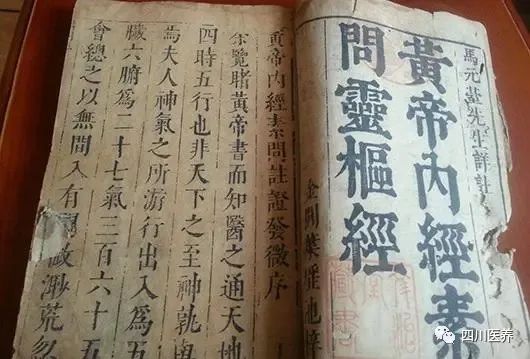 馬元臺先生詳註
黃帝內經素
問靈樞經
金閶葉瑤池梓
黃帝內經素問註證發微序
余覽睹黃帝書而知醫之通天地
四時五行也非天下之至神孰
焉夫人神氣之所游行出入爲五
臟六腑爲二十七氣三百六十五
會總之以無間入有間微渺荒忽
四川医养